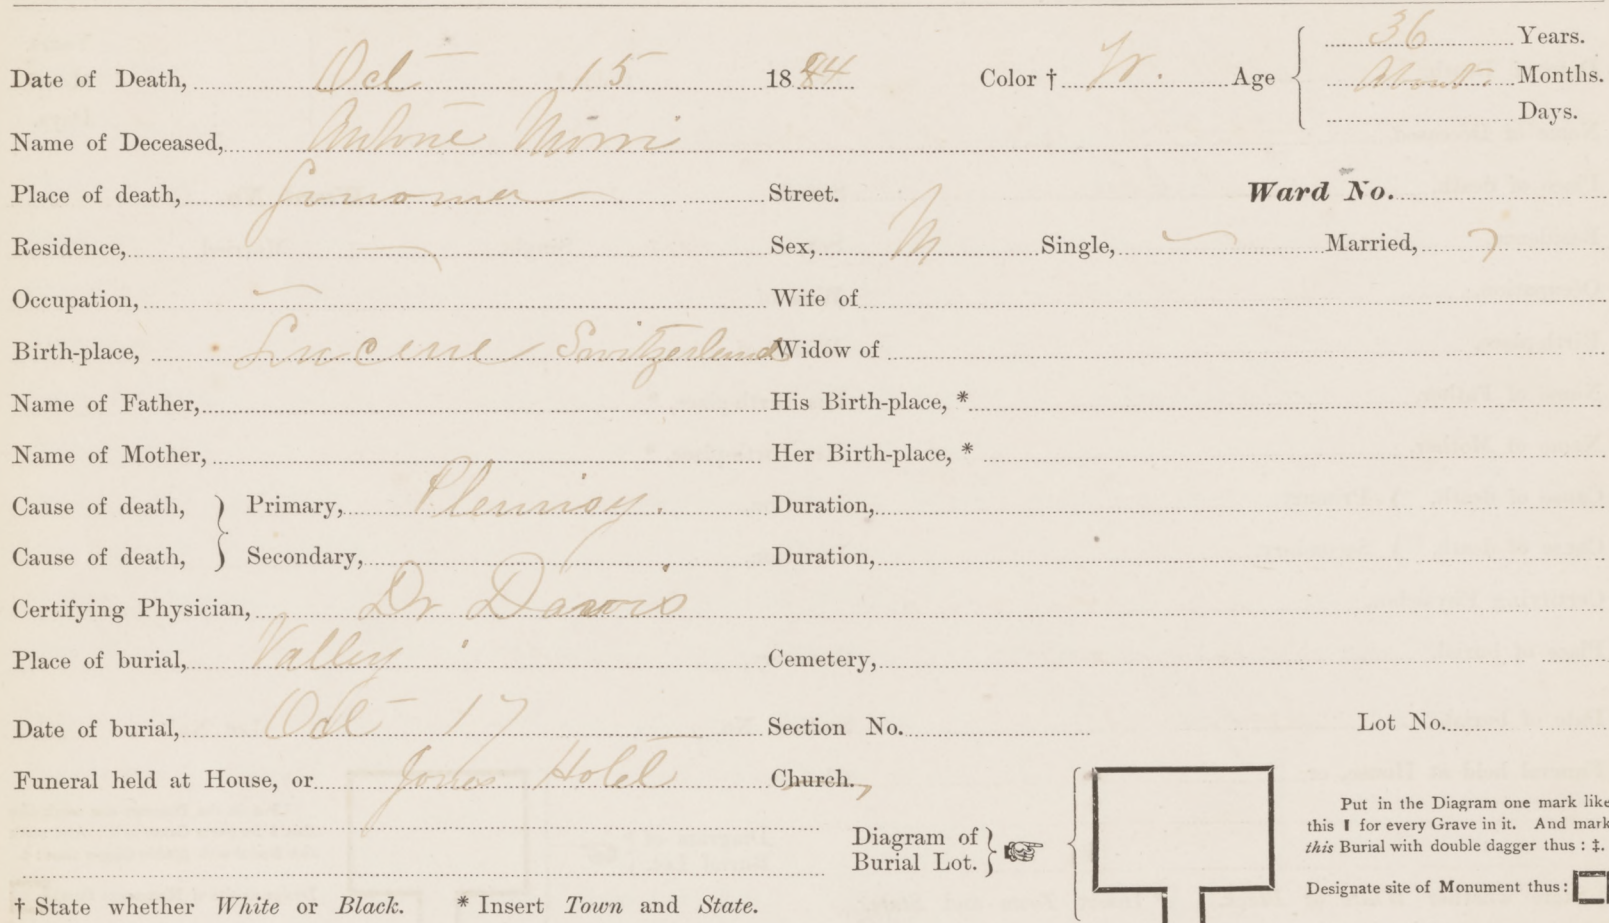 36 Years.
Date of Death, Oct 15 1884 Color † W. Age About Months.
Days.
Name of Deceased, Antone Morri
Place of death, Sonoma Street. Ward No.
Residence, — Sex, M Single, — Married, ?
Occupation, — Wife of
Birth-place, Lucerne Switzerland Widow of
Name of Father, His Birth-place, *
Name of Mother, Her Birth-place, *
Cause of death, } Primary, Pleurisy. Duration,
Cause of death, } Secondary, Duration,
Certifying Physician, Dr Davis
Place of burial, Valley Cemetery,
Date of burial, Oct 17 Section No. Lot No.
Funeral held at House, or Jones Hotel Church.
Put in the Diagram one mark like
this ❙ for every Grave in it. And mark
this Burial with double dagger thus : ‡.
Diagram of
Burial Lot. }
Designate site of Monument thus :
† State whether White or Black. * Insert Town and State.